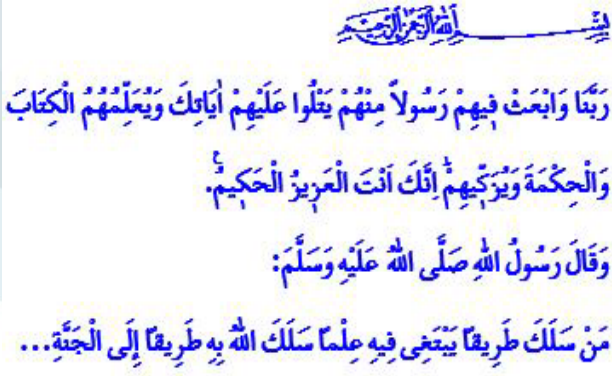 بِسْــــــــمِ اللهِ الرَّحْمٰنِ الرَّحِيمِ
رَبَّنَا وَابْعَثْ فِيهِمْ رَسُولاً مِنْهُمْ يَتْلُوا عَلَيْهِمْ اٰيَاتِكَ وَيُعَلِّمُهُمُ الْكِتَابَ
وَالْحِكْمَةَ وَيُزَكِّيهِمْۜ اِنَّكَ اَنْتَ الْعَزِيزُ الْحَكِيمُ۟.
وَقَالَ رَسُولُ اللهِ صَلَّى اللهُ عَلَيْهِ وَسَلَّمَ:
مَنْ سَلَكَ طَرِيقًا يَبْتَغِى فِيهِ عِلْمًا سَلَكَ اللهُ بِهِ طَرِيقًا إِلَى الْجَنَّةِ...